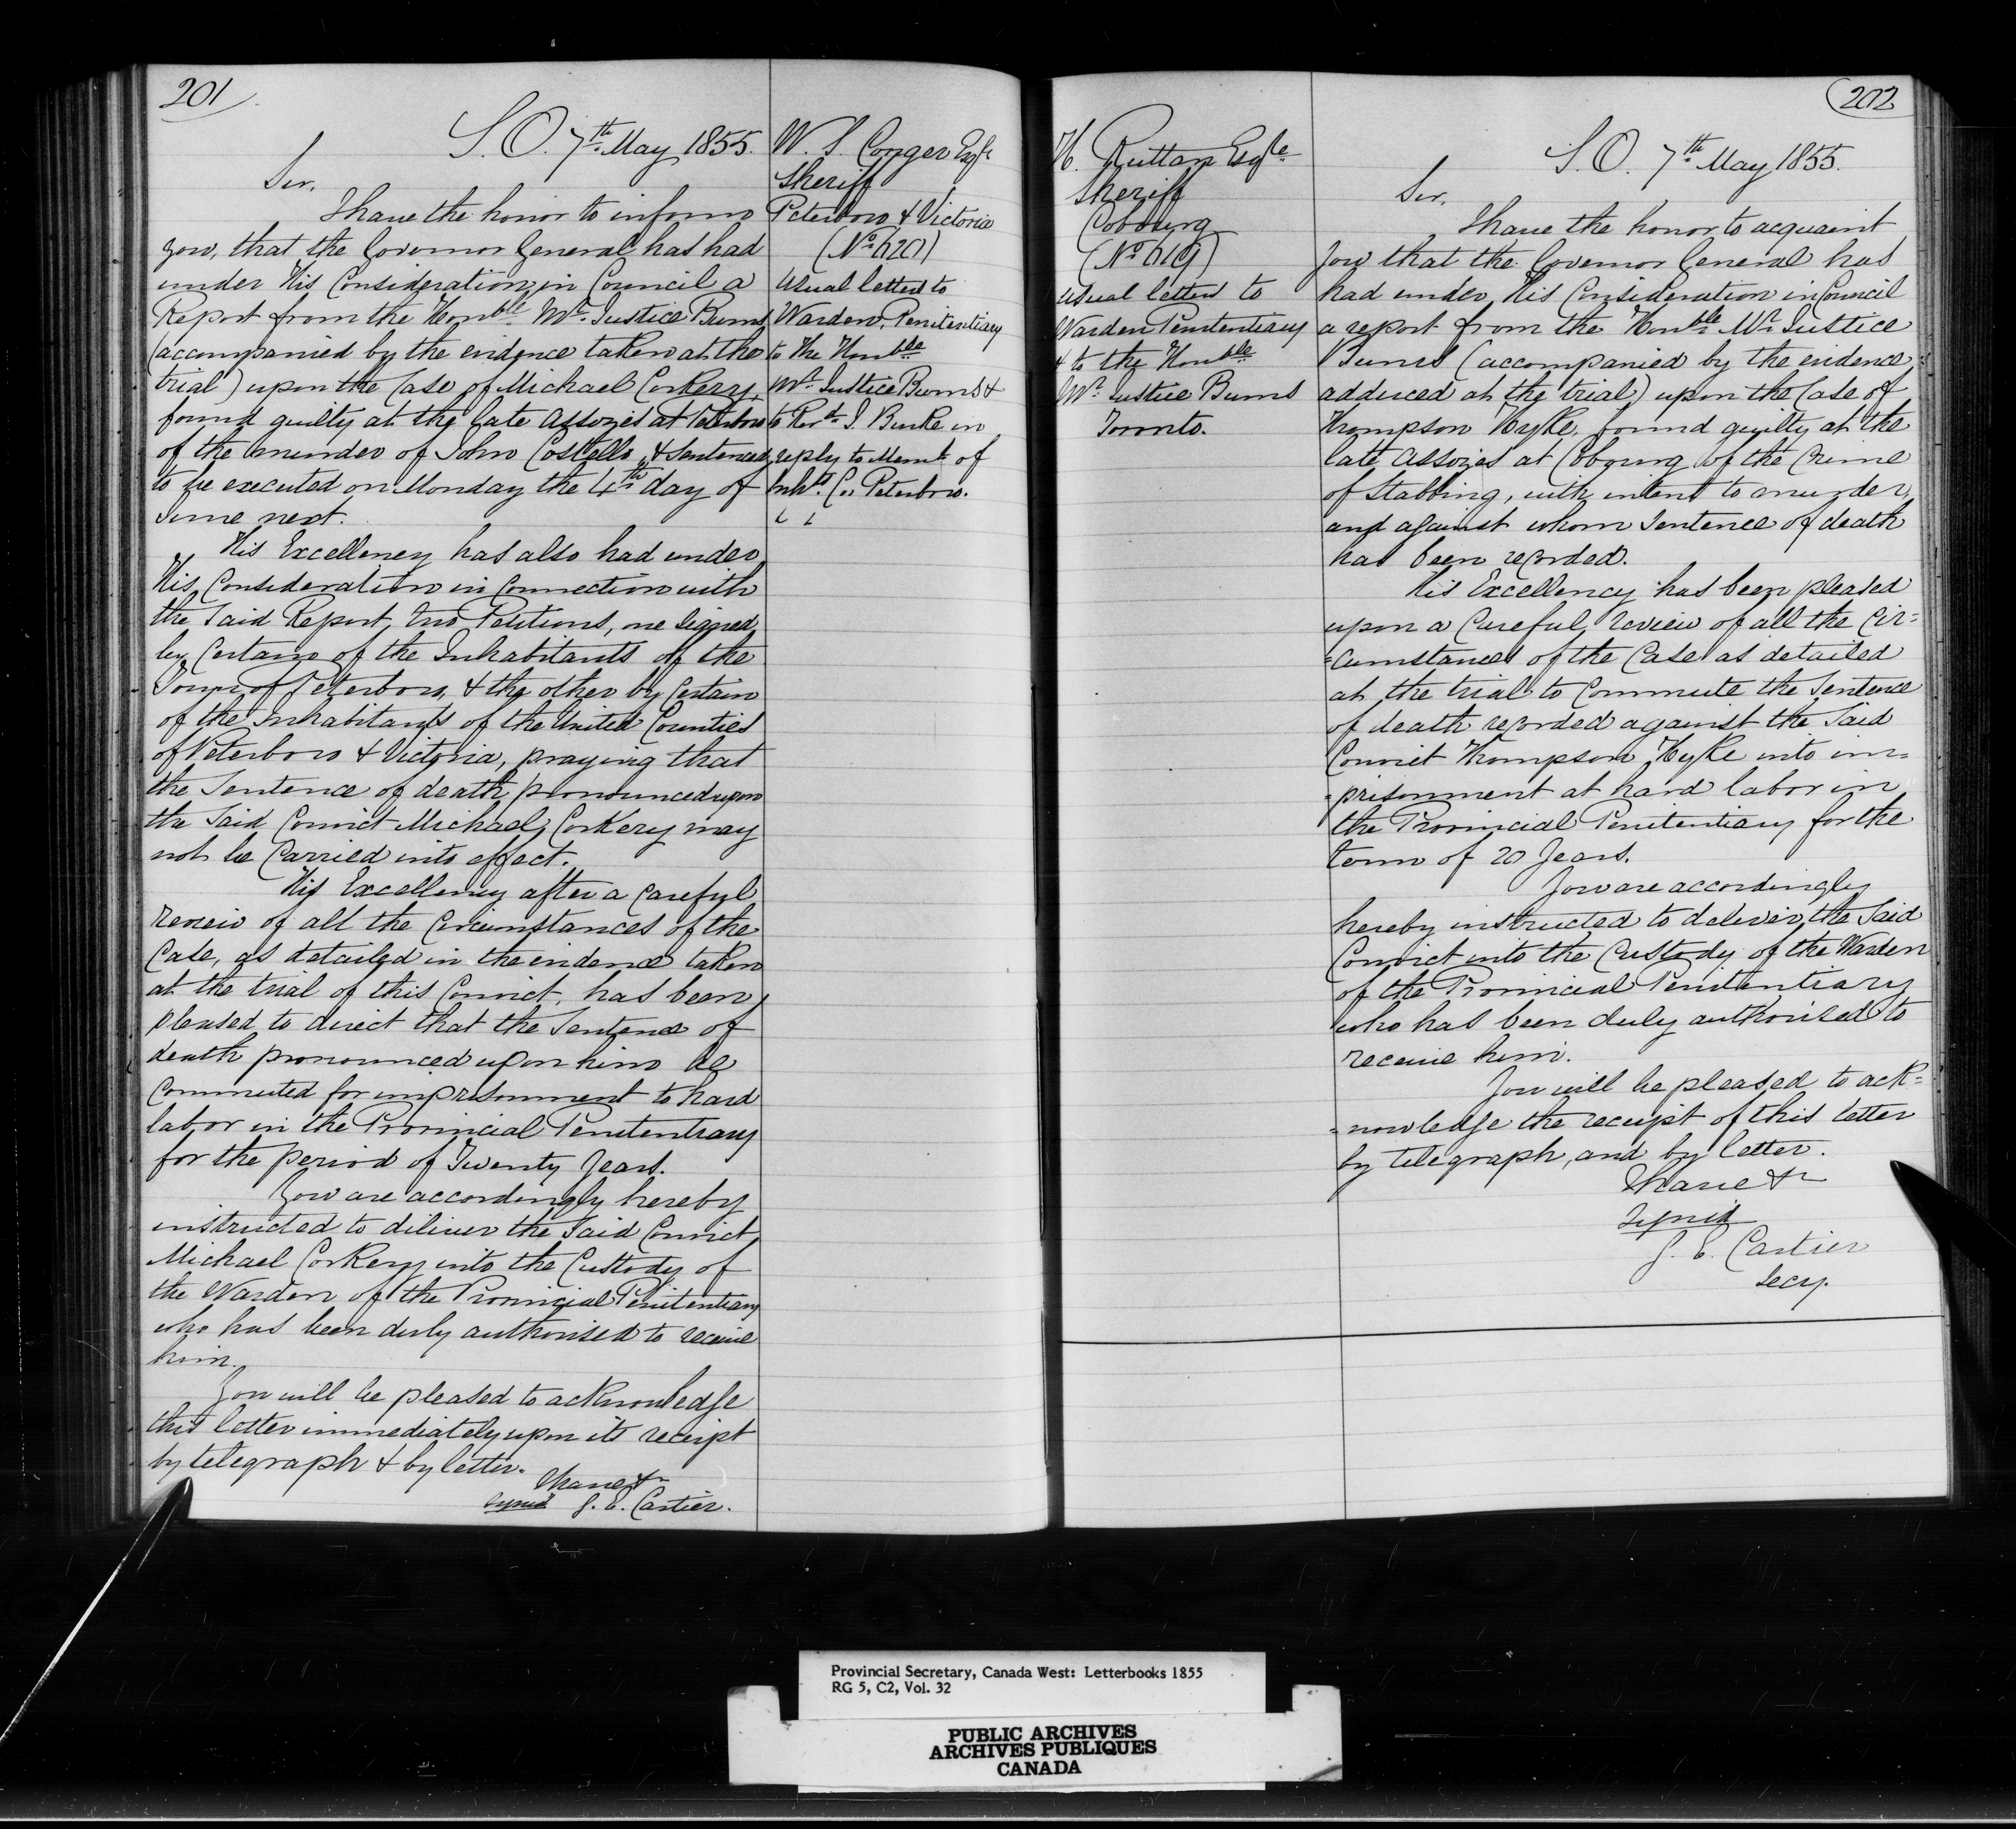 201
S. O. 7th May 1855.
Sir,
I have the honor to inform
you, that the Governor General has had
under His Consideration in Council a
Report from the Honble Mr. Justice Burns
(accompanied by the evidence taken at the
trial) upon the Case of Michael Corkery,
found guilty at the late Assozies at Peterboro
of the murder of John Costello, & Sentenced
to be executed on Monday the 4th day of
June next.
His Excellency has also had under
His Consideration in Connection with
the Said Report, two Petitions, one Signed
by Certain of the Inhabitants of the
Town of Peterboro, & the other by Certain
of the Inhabitants of the United Counties
of Peterboro & Victoria, praying that
the Sentence of death pronounced upon
the Said Convict Michael Corkery may
not be Carried into effect.
His Excellency after a Careful
review of all the Circumstances of the
Case, as detailed in the evidence taken
at the trial of this Convict, has been
pleased to direct that the Sentence of
death pronounced upon him be
Commuted for imprisonment to hard
labor in the Provincial Penitentiary
for the period of Twenty Years.
You are accordingly hereby
instructed to diliver the Said Convict
Michael Corkery into the Custody of
the Warden of the Provincial Penitentiary
who has been duly authorised to receive
him.
You will be pleased to acknowledge
this letter immediately upon its receipt
by telegraph & by letter.
I have &c
Signed G. E. Cartier.
W. S. Conger Esqre
Sheriff
Peterboro & Victoria
(No 620)
Usual letter to
Warden, Penitentiary
to The Honble
Mr. Justice Burns &
to Revd. J. Burke in
reply to Meml. of
Inhts. Co. Peterboro.
H. Ruttan Esqre
Sheriff
Cobourg
(No 619)
Usual letter to
Warden Penitentiary
& to the Honble
Mr. Justice Burns
Toronto.
202
S. O. 7th May 1855.
Sir,
I have the honor to acquaint
you that the Governor General has
had under His Consideration in Council
a report from the Honble Mr. Justice
Burns (accompanied by the evidence
adduced at the trial) upon the Case of
Thompson Hyke, found guilty at the
late Assozies at Cobourg of the Crime
of Stabbing, with intent to murder,
and against whom Sentence of death
has been recorded.
His Excellency has been pleased
upon a Careful review of all the Cir=
=cumstances of the Case as detailed
at the trial to Commute the Sentence
of death recorded against the Said
Convict Thompson Hyke into im=
=prisonment at hard labor in
the Provincial Penitentiary for the
term of 20 Years.
You are accordingly
hereby instructed to deliver the Said
Convict into the Custody of the Warden
of the Provincial Penitentiary
who has been duly authorised to
receive him.
You will be pleased to ack=
=nowledge the receipt of this letter
by telegraph, and by letter.
I have &c
Signed
G. E. Cartier
Secy.
Provincial Secretary, Canada West: Letterbooks 1855
RG 5, C2, Vol. 32
PUBLIC ARCHIVES
ARCHIVES PUBLIQUES
CANADA